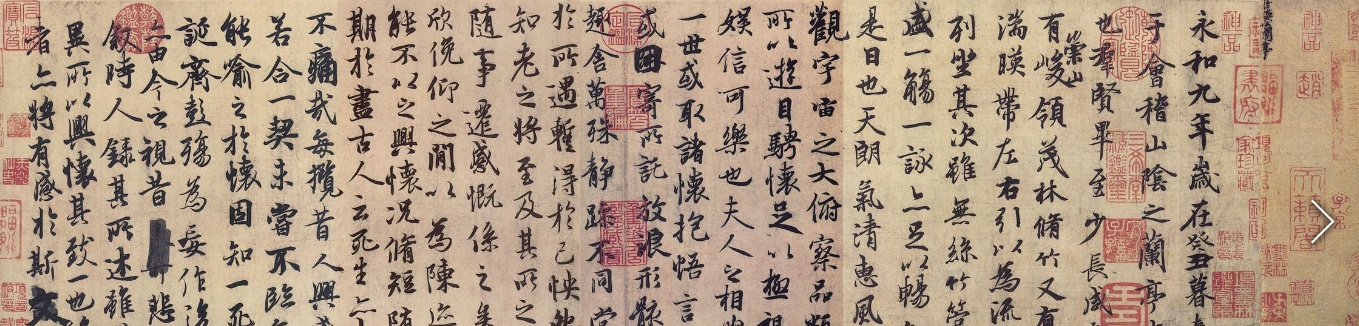 永和九年歲在癸丑暮
于會稽山陰之蘭亭
也羣賢畢至少長咸
崇山
有峻領茂林脩竹又有
湍暎帶左右引以為流
列坐其次雖無絲竹管
盛一觴一詠亦足以暢
是日也天朗氣清惠風
觀宇宙之大俯察品類
所以遊目騁懷足以極視
娛信可樂也夫人之相與
一世或取諸懷抱悟言
或因寄所託放浪形骸
趣舍萬殊靜躁不同當
於所遇蹔得於己怏然
知老之將至及其所之
隨事遷感慨係之矣
欣俛仰之閒以為陳迹
能不以之興懷況脩短隨
期於盡古人云死生亦
不痛哉每攬昔人興感
若合一契未嘗不臨
能喻之於懷固知一死
誕齊彭殤為妄作後
亦由今之視昔 悲
敘時人錄其所述雖
異所以興懷其致一也
者亦將有感於斯文
神品
神品